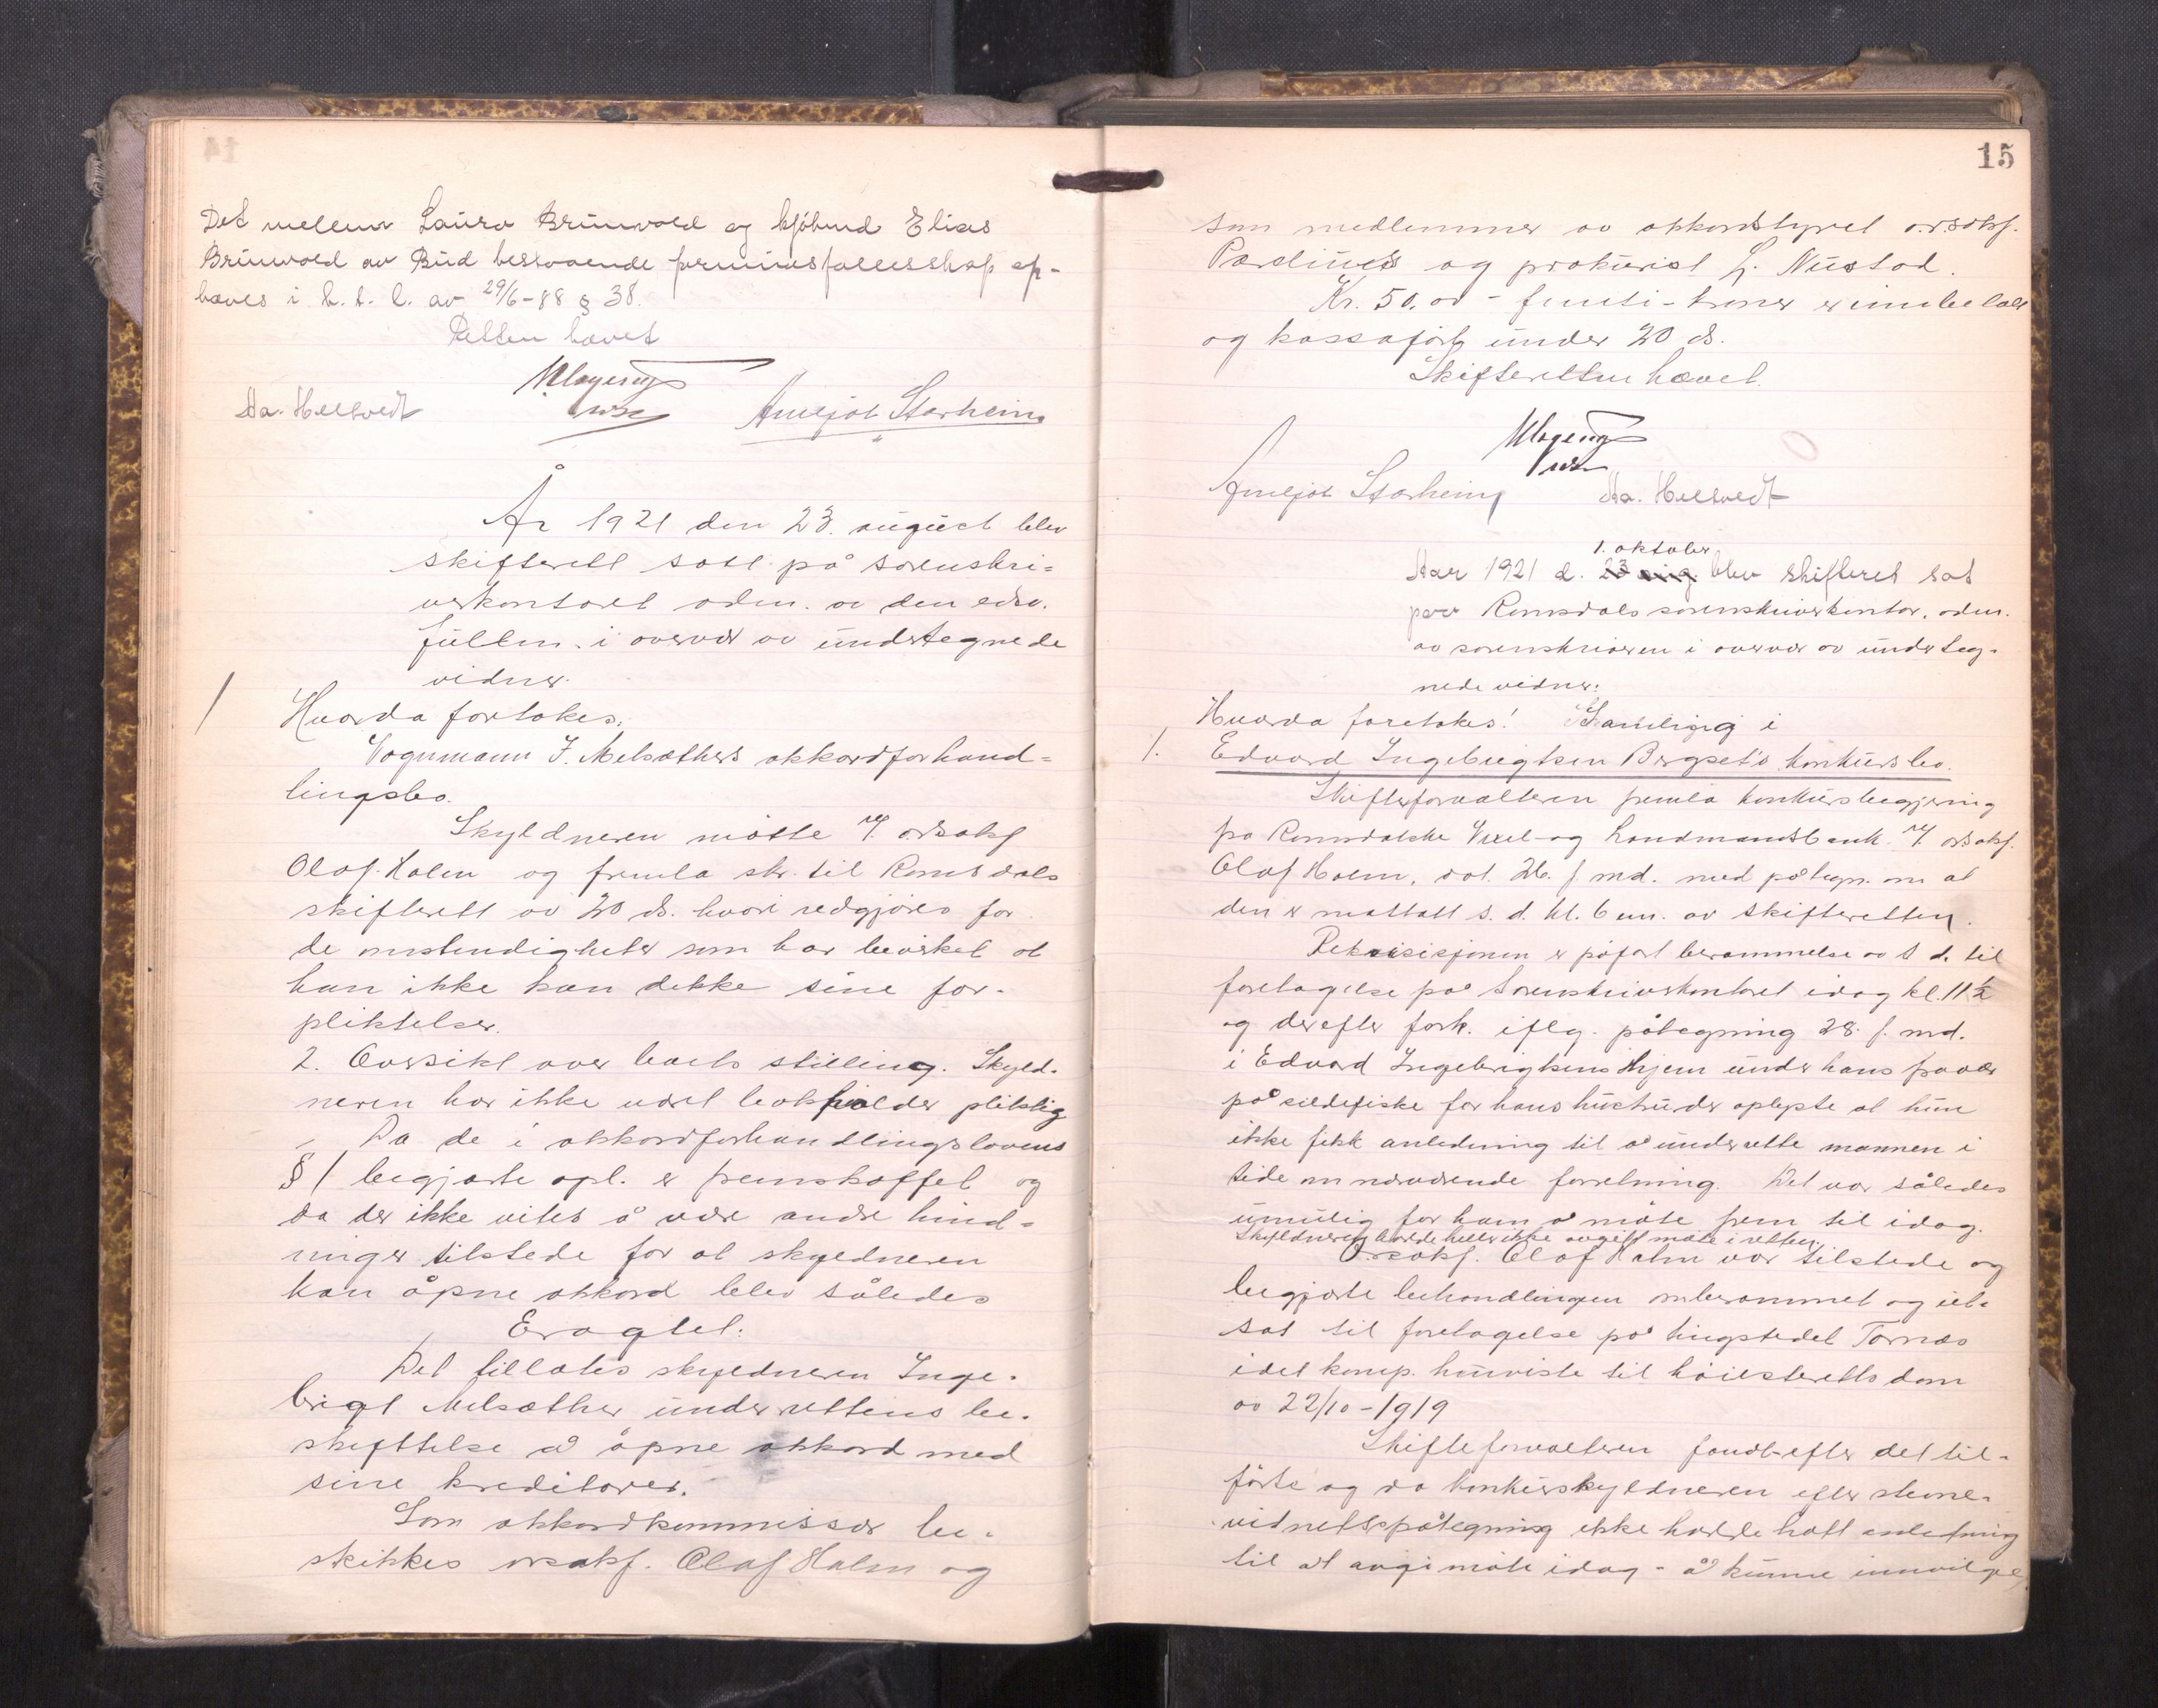 Det mellem Laura Brünvold og kjøbmd Elias
Brünvold av Bud bestaaende formuesfællesskap op-
hæves i h. t. l. av 29/6-88 § 38.
Retten hævet
Aa. Helsvedt
Starheim
År 1921 den 23. august blev
skifterett satt på sorenskri=
verkontoret adm. av den edsv.
fullm. i overvær av undertegnede
vidner.
1
Hvorda foretokes:
Vognmann I. Melsæthers akkordforhand=
lingsbo.
Skyldneren møtte v/ orsakf
Olaf Holm og fremla skr. til Romsdals
skifterett av 20 ds. hvori redgjøres for
de omstendigheter som har bevirket at
han ikke kan dekke sine for-
pliktelser.
2. Oversikt over boets stilling. Skyld-
neren har ikke været bokholder pliktig
Da de i akkordforhandlingslovens
§ 1 begjærte opl. er fremskaffet og
da der ikke vites å være andre hind=
ringer tilstede for at skyldneren
kan åpne akkord blev således
Eragtet:
Det tillates skyldneren Inge-
brigt Melsæther under rettens be-
skyttelse å åpne akkord med
sine kreditorer.
Som akkordkommissær be-
skikkes orsakf. Olaf Holm og
15
som medlemmer av akkordstyret o.r.sakf.
og prokurist L. Nustad.
Kr. 50.00 - femti - kroner er innbetalt
og kassaført under 20 ds.
Skifteretten hævet.
Starheim Aa. Helsvedt
1. oktober
Aar 1921 d. 23 aug. blev skifteret sat
paa Romsdals sorenskriverkontor, adm.
av sorenskriveren i overvær av underteg-
nede vidner:
Hvorda foretokes! Samling i
1. Edvard Ingebrigtsen Bergset's konkursbo.
Skifteforvalteren fremla konkursbegjæring
fra Romsdalske Vexel- og Landmandsbank v/ orsakf.
Olaf Holm, dat. 26. f. md. med påtegn. om at
den er mottatt s. d. kl. 6 em. av skifteretten.
Rekvisisjonen er påført berammelse av s. d. til
foretagelse på Sorenskriverkontoret idag kl. 11½
og derefter fork. iflg. påtegning 28. f. md.
i Edvard Ingebrigtsens hjem under hans fravær
på sildefiske for hans hustru der oplyste at hun
ikke fikk anledning til å underrette mannen i
tide om nærværende forretning. Det var således
umulig for ham å møte frem til idag.
Skyldneren hadde heller ikke avgitt møte i retten.
Orsakf. Olaf Holm var tilstede og
begjærte behandlingen omberammet og ut-
sat til foretagelse på tingstedet Tornæs
idet komp. henviste til høiesteretts dom
av 22/10-1919
Skifteforvalteren fandt efter det til-
førte og da konkursskyldneren efter stevne-
vidnets påtegning ikke hadde hatt anledning
til at avgi møte idag - å kunne innvilge